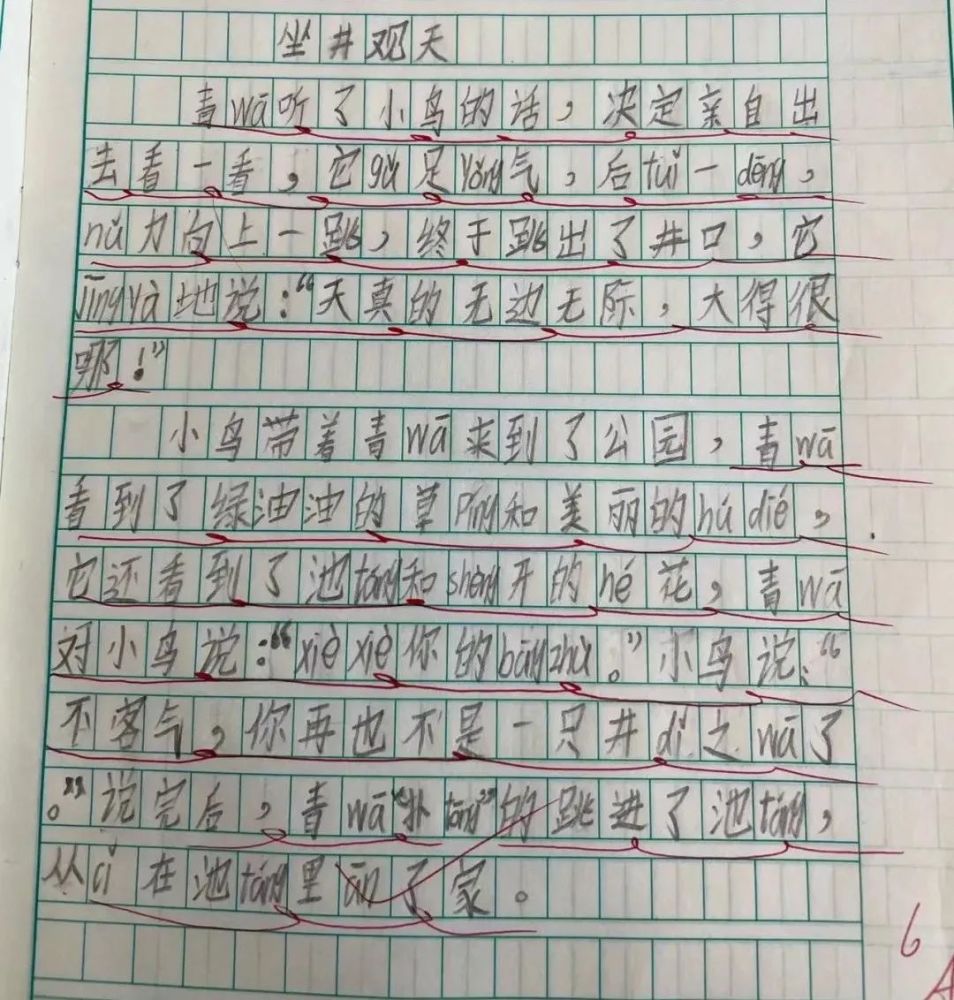 坐井观天
青wā听了小鸟的话，决定亲自出
去看一看，它gǔ足yǒng气，后tuì一dēng，
nǔ力向上一跳，终于跳出了井口，它
jīngyà地说：“天真的无边无际，大得很
哪！”
小鸟带着青wā来到了公园，青wā
看到了绿油油的草Píng和美丽的hú dié，
它还看到了池táng和shèng开的hé花，青wā
对小鸟说：“xiè xiè你的bāngzhù。”小鸟说：“
不客气，你再也不是一只井dǐ之wā了
。”说完后，青wā“扑tōng”的跳进了池táng，
从cǐ在池táng里ān了家。
6
A